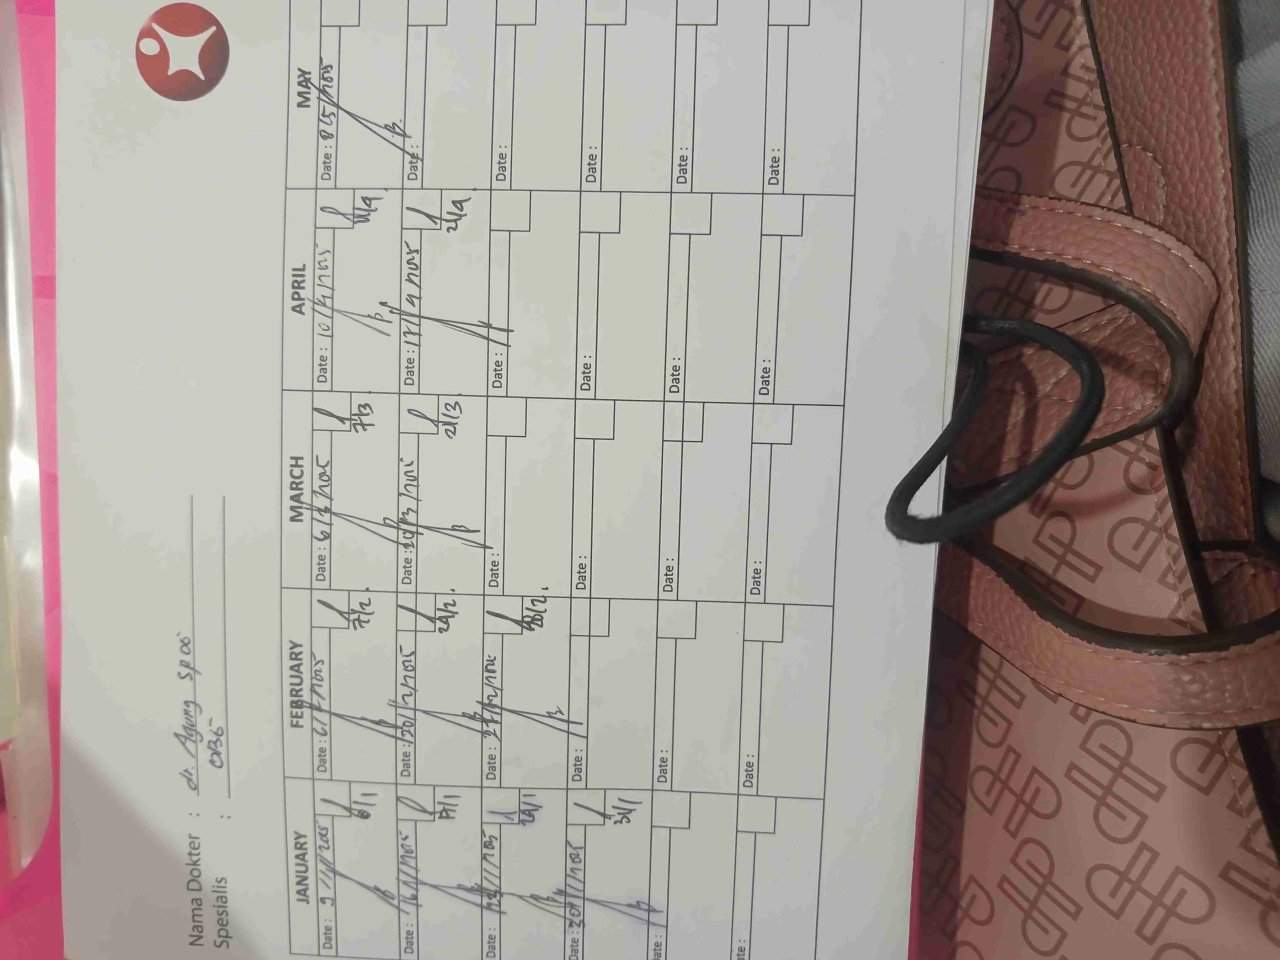 Nama Dokter : dr. Agung SpOG
Spesialis : OBG
JANUARY FEBRUARY MARCH APRIL MAY
Date : 9/1/2025 Date : 6/2/2025 Date : 6/3/2025 Date : 10/4/2025 Date : 8/5/2025
7/2. 7/3. 11/4.
Date : 16/1/2025 Date : 20/2/2025 Date : 20/3/2025 Date : 17/4/2025 Date :
17/1 24/2. 21/3. 21/4.
Date : 23/1/2025 Date : 27/2/2025 Date : Date : Date :
24/1 28/2.
Date : 30/1/2025 Date : Date : Date : Date :
31/1
Date : Date : Date : Date :
Date : Date : Date : Date :